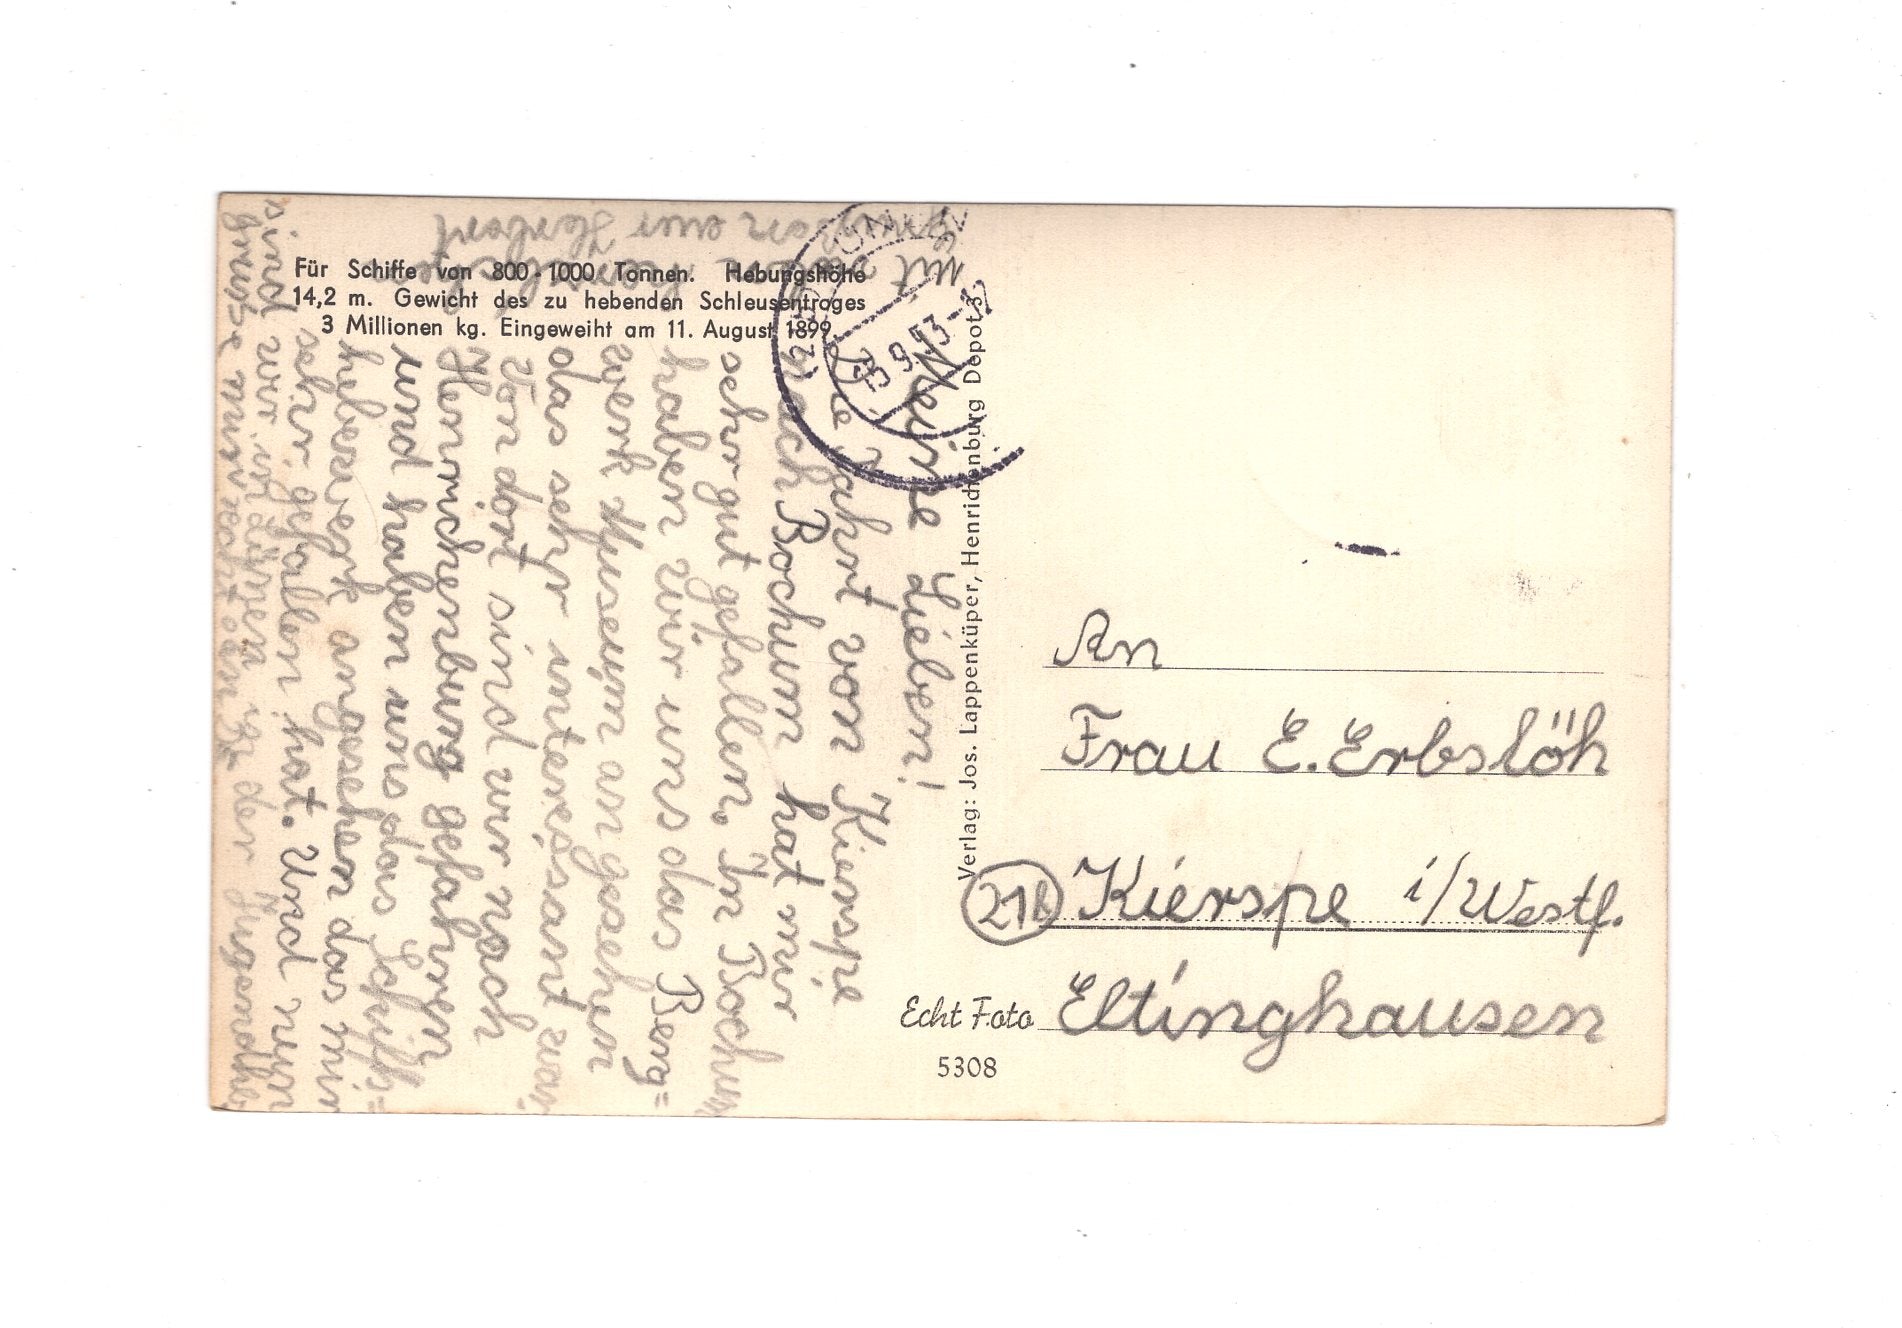 Für Schiffe von 800-1000 Tonnen. Hebungshöhe
14,2 m. Gewicht des zu hebenden Schleusentroges
3 Millionen kg. Eingeweiht am 11. August 1899.
Meine Lieben!
Die Fahrt von Kierspe
nach Bochum hat mir
sehr gut gefallen. In Bochum
haben wir uns das Berg=
werk Museum angesehen
das sehr interessant war.
Von dort sind wir nach
Hennrichenburg gefahren
und haben uns das Schiff=
hebewerk angesehen das mir
sehr gefallen hat. Und nun
sind wir in
grube und der
Mit
Verlag: Jos. Lappenküper, Henrichenburg Depot 3
5.9.53
An
Frau E. Erbslöh
(21b) Kierspe i/Westf.
Echt Foto
Eltinghausen
5308